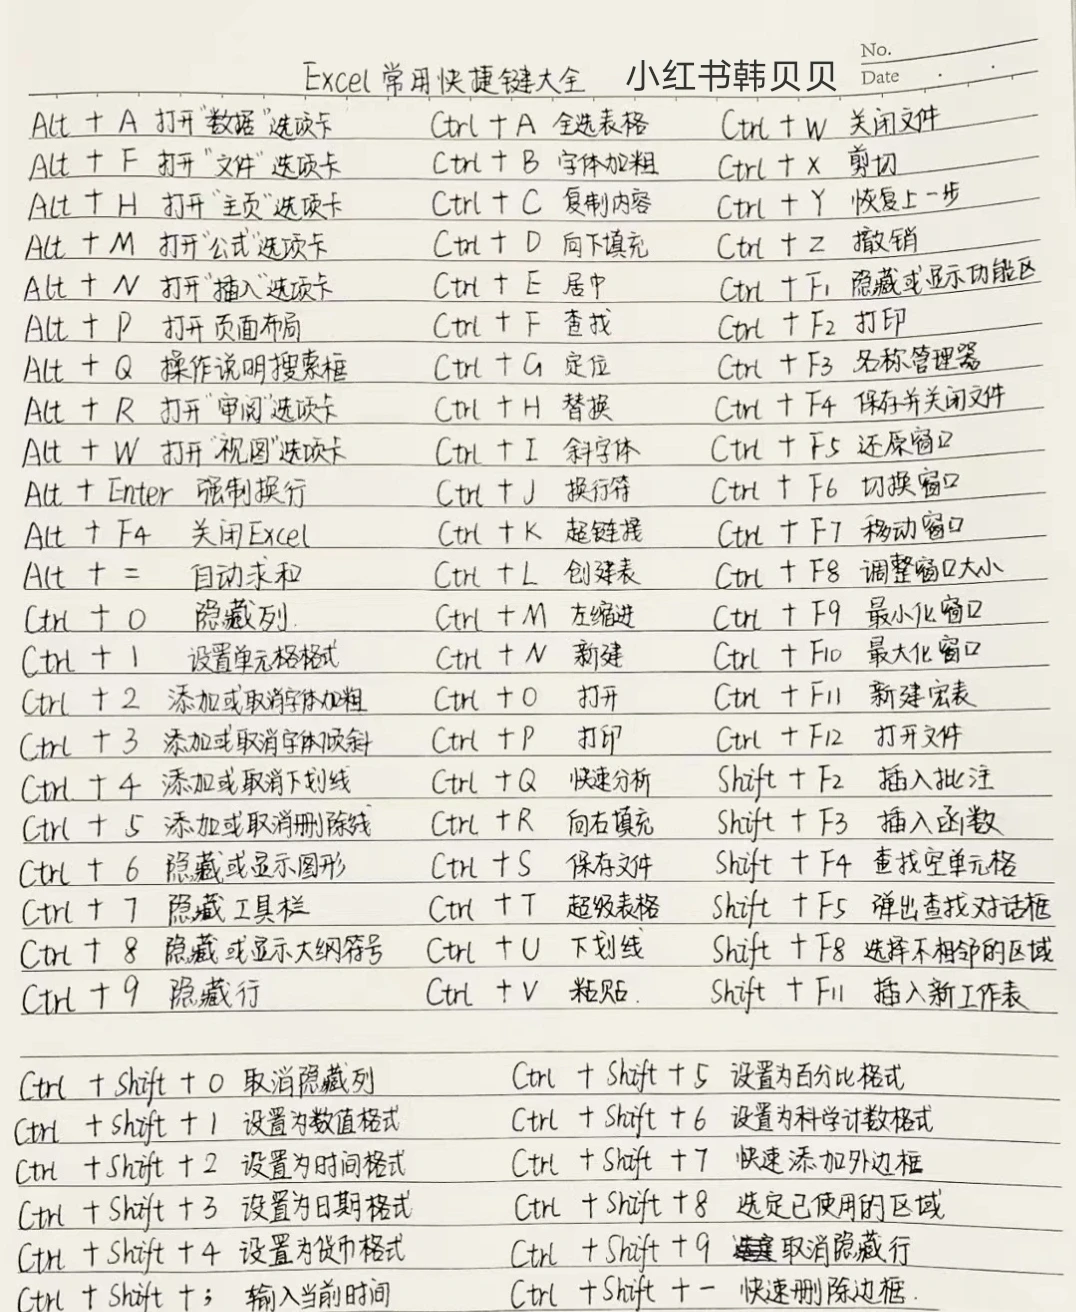 No.
Date
Excel 常用快捷键大全 小红书韩贝贝
Alt + A 打开"数据"选项卡
Alt + F 打开"文件"选项卡
Alt + H 打开"主页"选项卡
Alt + M 打开"公式"选项卡
Alt + N 打开"插入"选项卡
Alt + P 打开页面布局
Alt + Q 操作说明搜索框
Alt + R 打开"审阅"选项卡
Alt + W 打开"视图"选项卡
Alt + Enter 强制换行
Alt + F4 关闭Excel
Alt + = 自动求和
Ctrl + 0 隐藏列.
Ctrl + 1 设置单元格格式
Ctrl + 2 添加或取消字体加粗
Ctrl + 3 添加或取消字体倾斜
Ctrl + 4 添加或取消下划线
Ctrl + 5 添加或取消删除线
Ctrl + 6 隐藏或显示图形
Ctrl + 7 隐藏工具栏
Ctrl + 8 隐藏或显示大纲符号
Ctrl + 9 隐藏行
Ctrl + A 全选表格
Ctrl + B 字体加粗
Ctrl + C 复制内容
Ctrl + D 向下填充
Ctrl + E 居中
Ctrl + F 查找
Ctrl + G 定位
Ctrl + H 替换
Ctrl + I 斜字体
Ctrl + J 换行符
Ctrl + K 超链接
Ctrl + L 创建表
Ctrl + M 左缩进
Ctrl + N 新建
Ctrl + O 打开
Ctrl + P 打印
Ctrl + Q 快速分析
Ctrl + R 向右填充
Ctrl + S 保存文件
Ctrl + T 超级表格
Ctrl + U 下划线
Ctrl + V 粘贴.
Ctrl + W 关闭文件
Ctrl + X 剪切
Ctrl + Y 恢复上一步
Ctrl + Z 撤销
Ctrl + F1 隐藏或显示功能区
Ctrl + F2 打印
Ctrl + F3 名称管理器
Ctrl + F4 保存并关闭文件
Ctrl + F5 还原窗口
Ctrl + F6 切换窗口
Ctrl + F7 移动窗口
Ctrl + F8 调整窗口大小
Ctrl + F9 最小化窗口
Ctrl + F10 最大化窗口
Ctrl + F11 新建宏表
Ctrl + F12 打开文件
Shift + F2 插入批注
Shift + F3 插入函数
Shift + F4 查找空单元格
Shift + F5 弹出查找对话框
Shift + F8 选择不相邻的区域
Shift + F11 插入新工作表
Ctrl + Shift + 0 取消隐藏列
Ctrl + Shift + 1 设置为数值格式
Ctrl + Shift + 2 设置为时间格式
Ctrl + Shift + 3 设置为日期格式
Ctrl + Shift + 4 设置为货币格式
Ctrl + Shift + ; 输入当前时间
Ctrl + Shift + 5 设置为百分比格式
Ctrl + Shift + 6 设置为科学计数格式
Ctrl + Shift + 7 快速添加外边框
Ctrl + Shift + 8 选定已使用的区域
Ctrl + Shift + 9 取消隐藏行
Ctrl + Shift + - 快速删除边框.